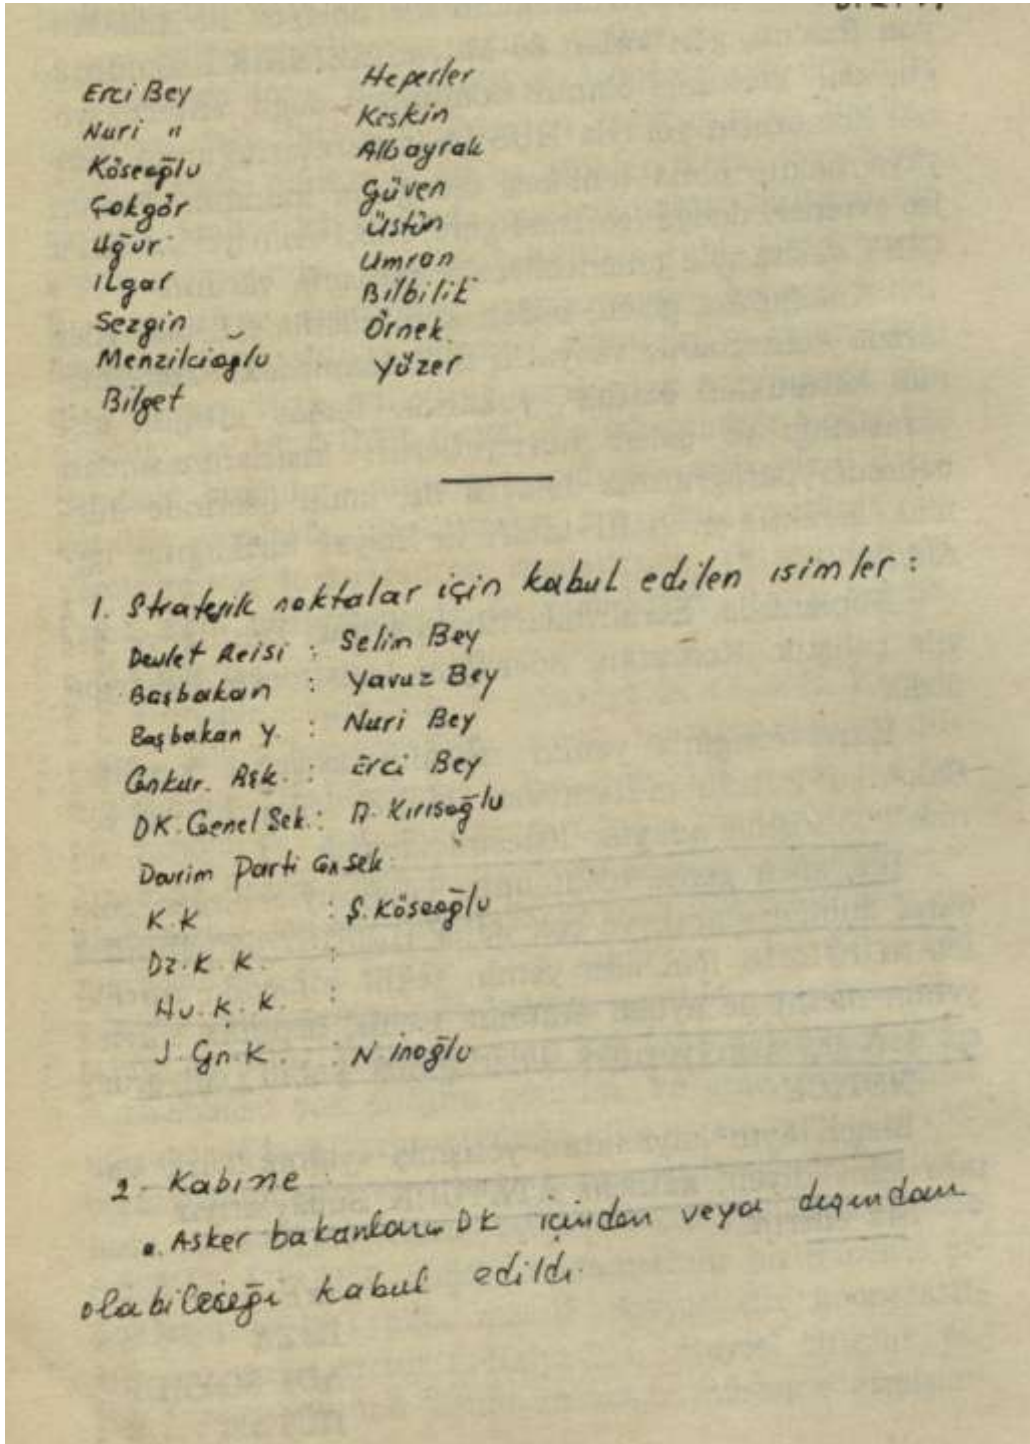 Erci Bey
Nuri "
Köseoğlu
Çokgör
Uğur
Ilgar
Sezgin
Menzilcioğlu
Bilget
Heperler
Keskin
Albayrak
Güven
Üstün
Umran
Bilbilik
Örnek
Yüzer
1. Stratejik noktalar için kabul edilen isimler :
Devlet Reisi : Selim Bey
Başbakan : Yavuz Bey
Başbakan Y. : Nuri Bey
Genkur. Bşk. : Erci Bey
DK. Genel Sek. : A. Kırısoğlu
Devrim Parti Gn Sek.
K. K : Ş. Köseoğlu
Dz. K. K. :
Hv. K. K. :
J. Gn. K. : N. İnoğlu
2 - Kabine
. Asker bakanların DK içinden veya dışından
olabileceği kabul edildi.